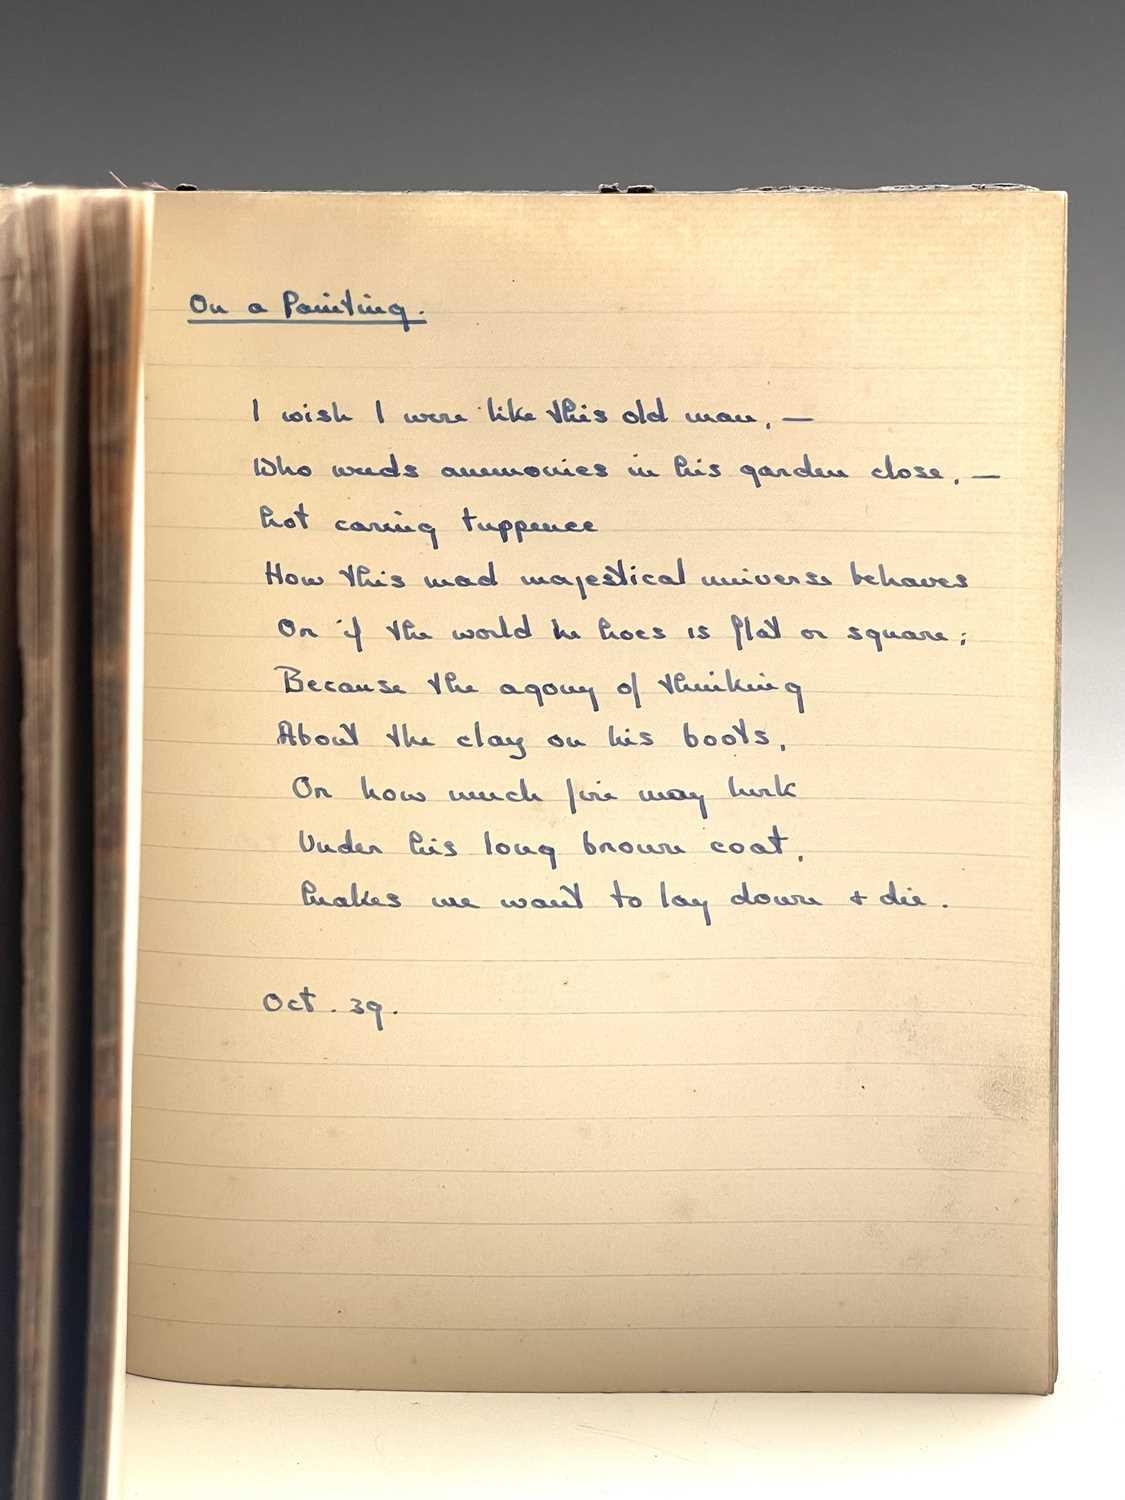 On a Painting.
I wish I were like this old man, —
Who weeds anemonies in his garden close, —
Not caring tuppence
How this mad majestical universe behaves
Or if the world he hoes is flat or square;
Because the agony of thinking
About the clay on his boots,
Or how much fire may lurk
Under his long brown coat,
Makes me want to lay down & die.
Oct. 39.